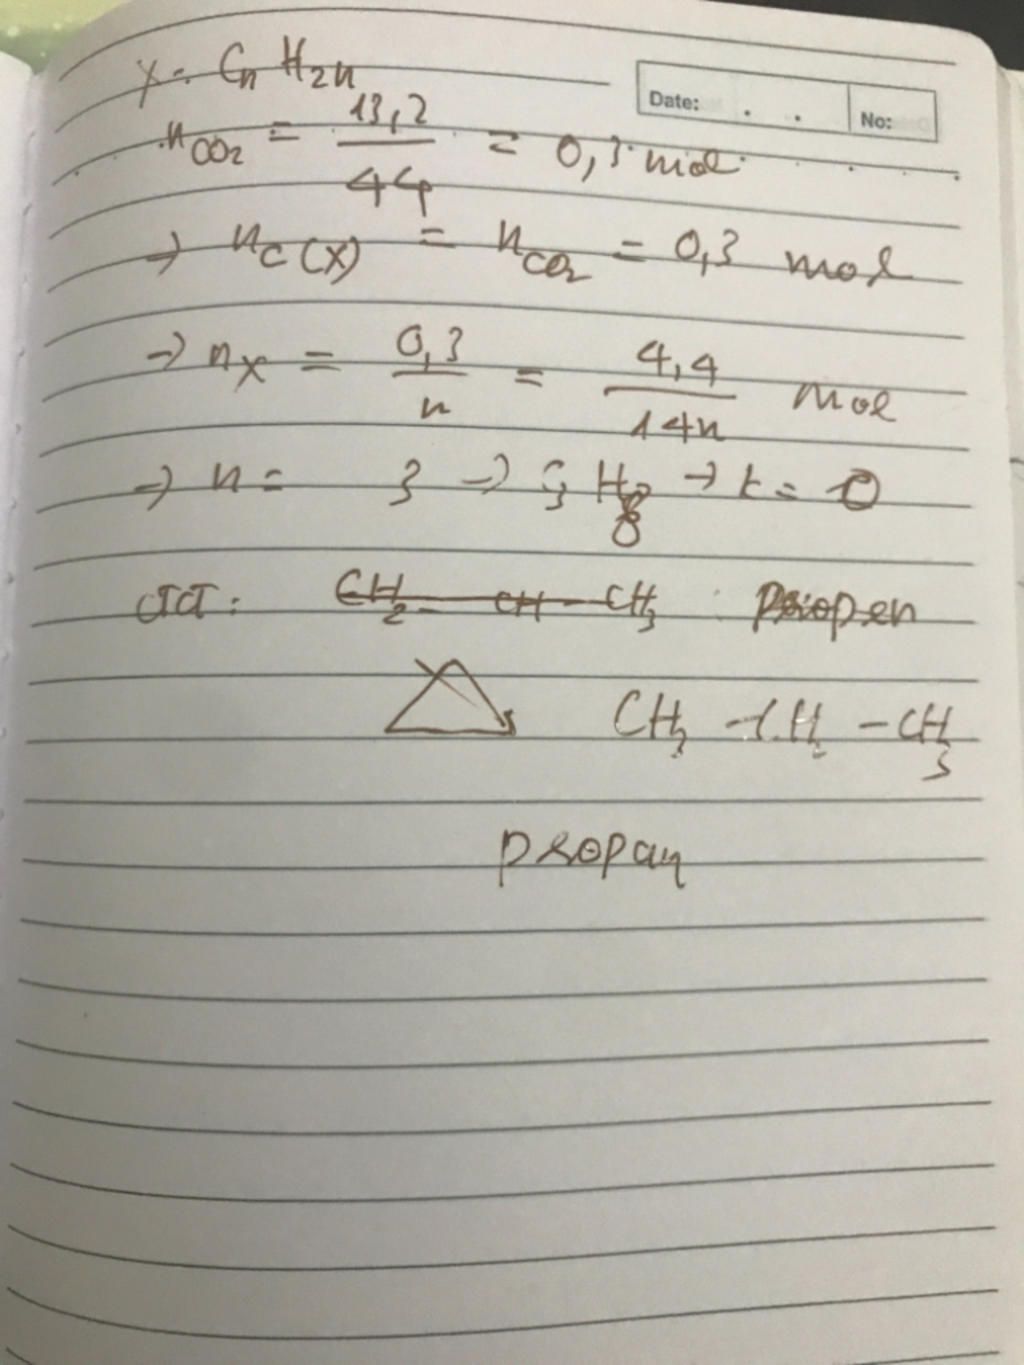 X: CnH2n
Date: . . No:
nCO2 = 13,2/44 = 0,3 mol
→ nC(X) = nCO2 = 0,3 mol
→ nX = 0,3/n = 4,4/14n mol
→ n = 3 → C3H8 → k = 0
CTCT: CH2 - CH - CH3 : Propen
CH3 - CH2 - CH3
propan